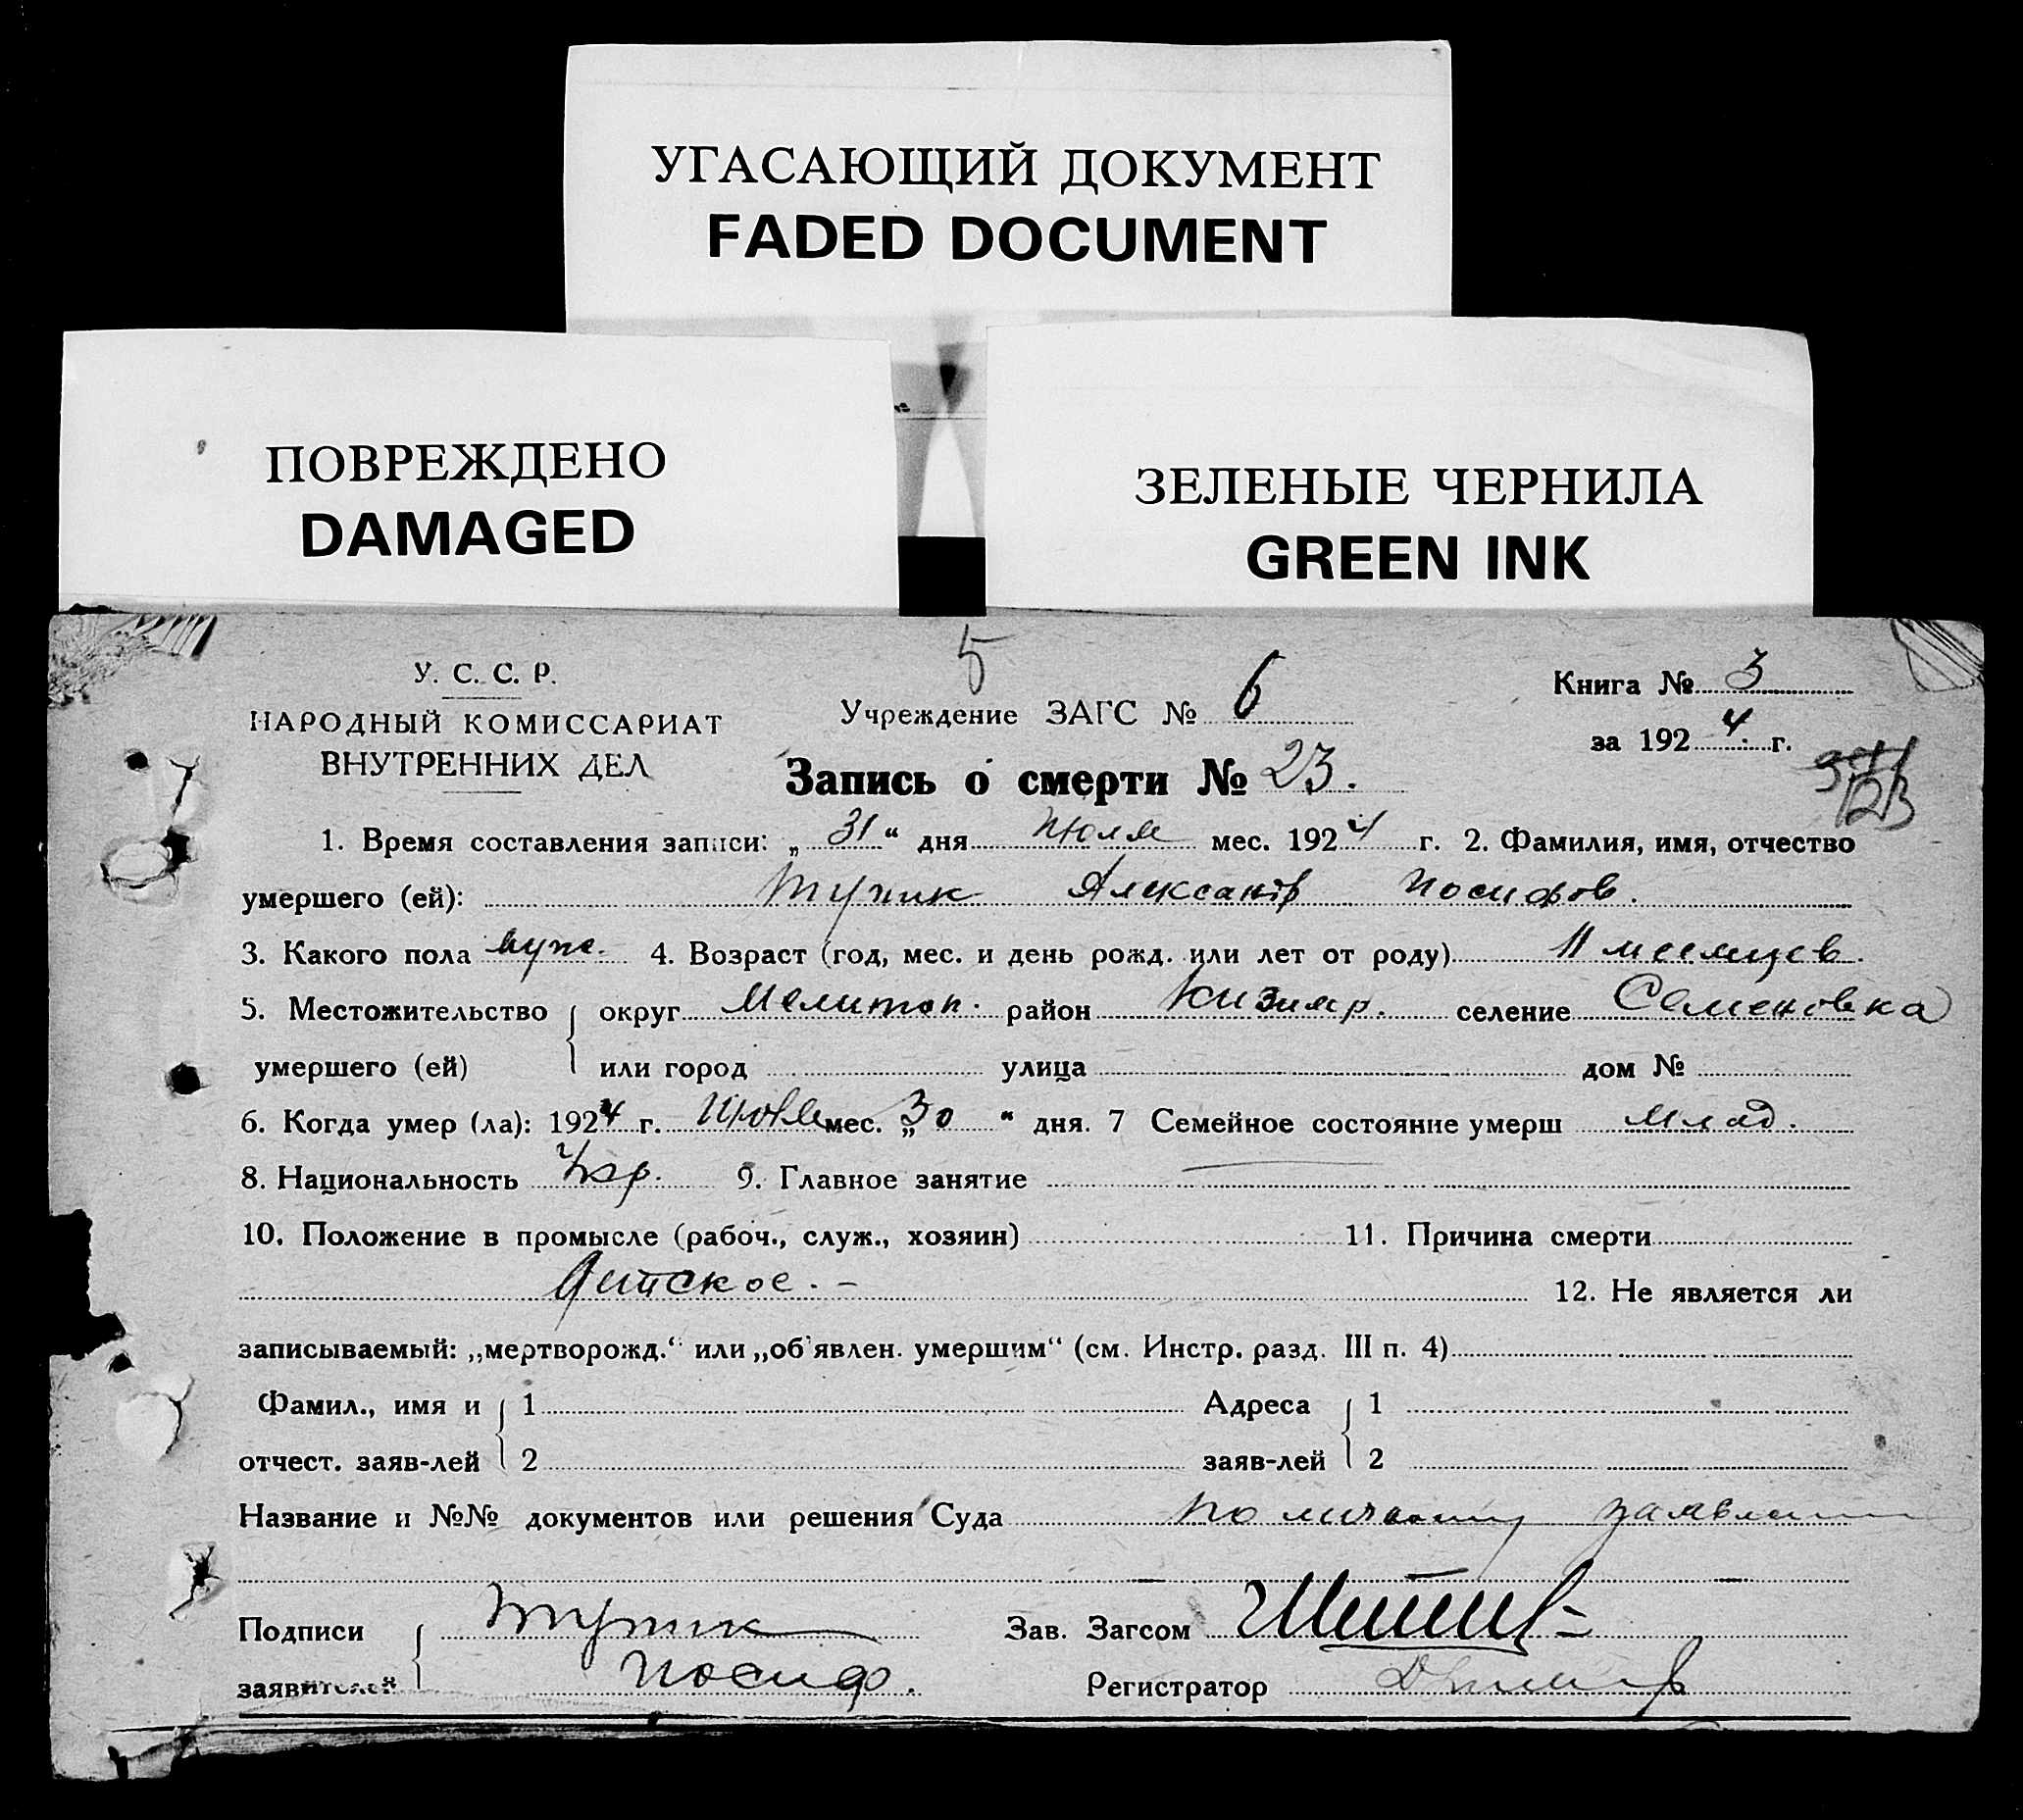 УГАСАЮЩИЙ ДОКУМЕНТ
FADED DOCUMENT
ПОВРЕЖДЕНО
DAMAGED
ЗЕЛЕНЫЕ ЧЕРНИЛА
GREEN INK
У. С. С. Р.
НАРОДНЫЙ КОМИССАРИАТ
ВНУТРЕННИХ ДЕЛ
5
Учреждение ЗАГС № 6
Книга № 3
за 1924 г.
Запись о смерти № 23.
1. Время составления записи: „31“ дня Июля мес. 1924 г. 2. Фамилия, имя, отчество
умершего (ей): Тупик Александр Иосифов.
3. Какого пола муж. 4. Возраст (год, мес. и день рожд. или лет от роду) 11 месяцев.
5. Местожительство округ Мелитоп. район Кизияр. селение Семеновка
умершего (ей) или город улица дом №
6. Когда умер (ла): 1924 г. мес. „30“ дня. 7 Семейное состояние умерш млад.
8. Национальность Укр. 9. Главное занятие
10. Положение в промысле (рабоч., служ., хозяин) 11. Причина смерти
Детское. - 12. Не является ли
записываемый: „мертворожд.“ или „об'явлен. умершим“ (см. Инстр. разд. III п. 4)
Фамил., имя и 1 Адреса 1
отчест. заяв-лей 2 заяв-лей 2
Название и №№ документов или решения Суда по личному
Подписи Тупик Зав. Загсом
заявителей Иосиф. Регистратор